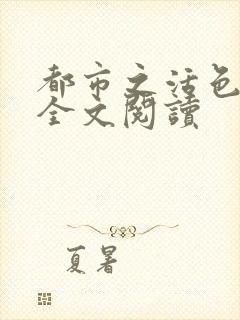 都市之活色
全文閱讀
夏暑